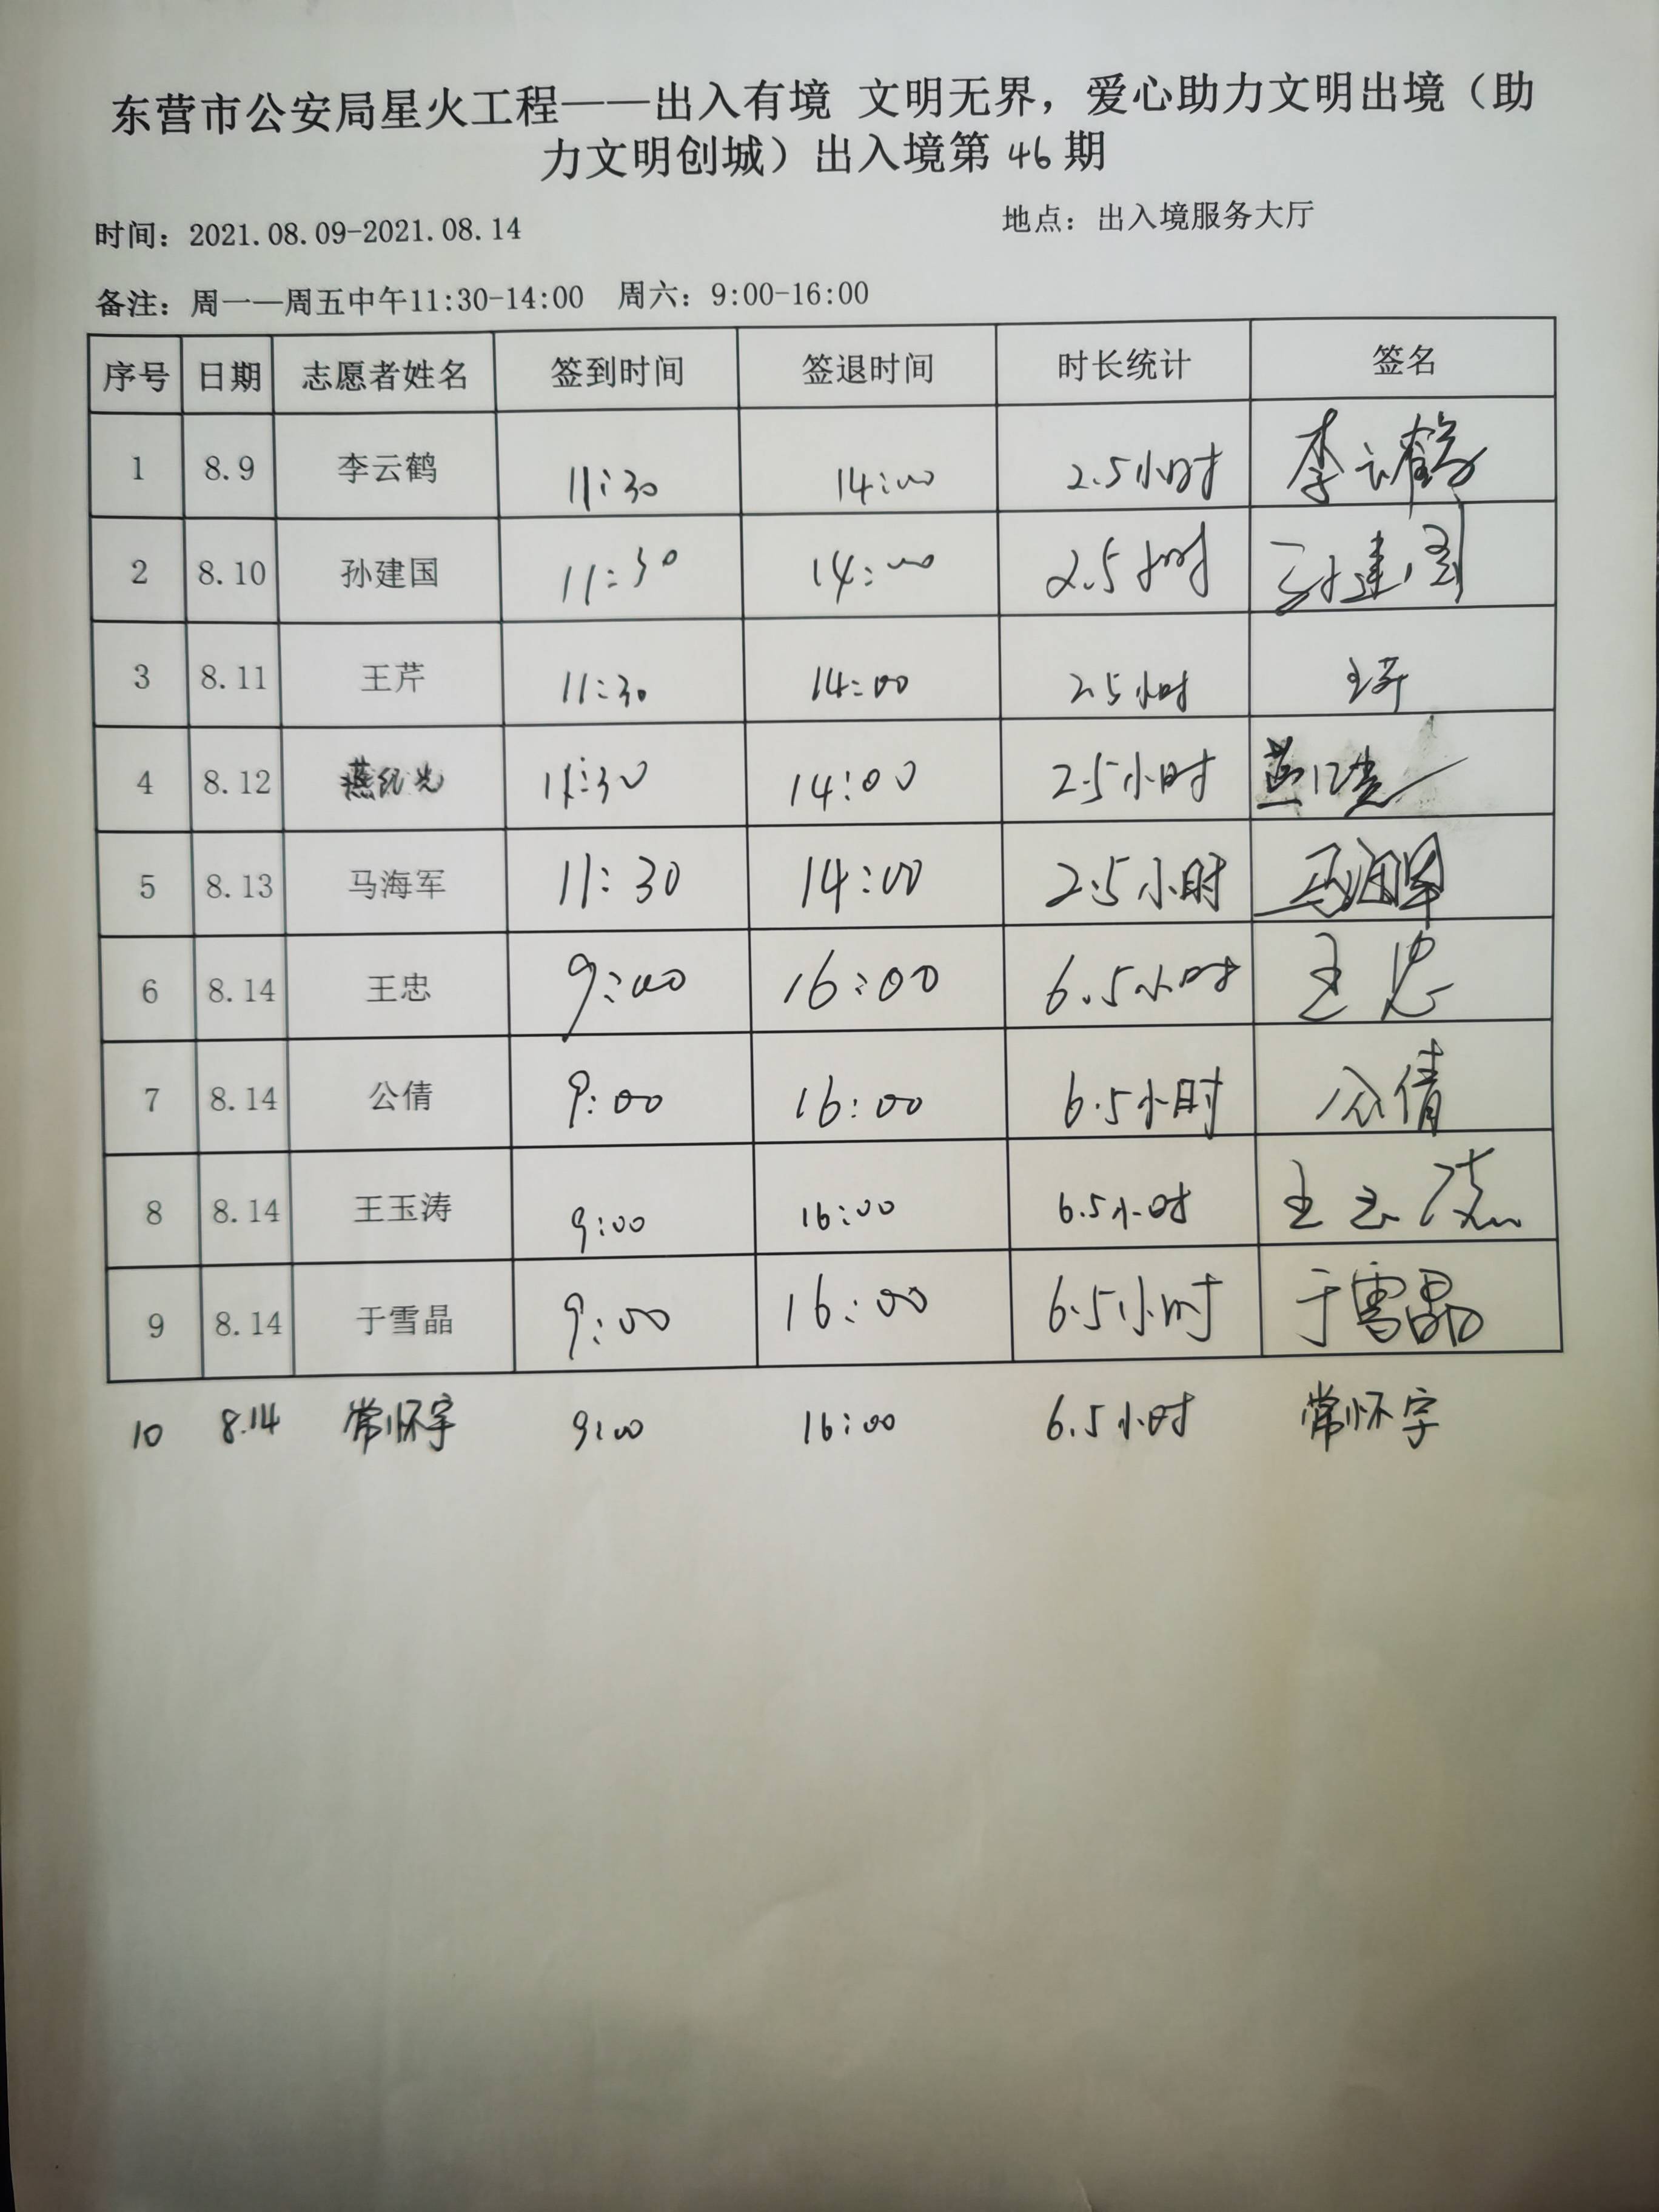 东营市公安局星火工程——出入有境 文明无界，爱心助力文明出境（助
力文明创城）出入境第 46 期
时间：2021.08.09-2021.08.14 地点：出入境服务大厅
备注：周一—周五中午11:30-14:00 周六：9:00-16:00
序号 日期 志愿者姓名 签到时间 签退时间 时长统计 签名
1 8.9 李云鹤 11:30 14:00 2.5小时 李云鹤
2 8.10 孙建国 11:30 14:00 2.5小时 孙建国
3 8.11 王芹 11:30 14:00 2.5小时 王芹
4 8.12 11:30 14:00 2.5小时
5 8.13 马海军 11:30 14:00 2.5小时 马海军
6 8.14 王忠 9:00 16:00 6.5小时 王忠
7 8.14 公倩 9:00 16:00 6.5小时 公倩
8 8.14 王玉涛 9:00 16:00 6.5小时 王玉涛
9 8.14 于雪晶 9:00 16:00 6.5小时 于雪晶
10 8.14 常怀宇 9:00 16:00 6.5小时 常怀宇